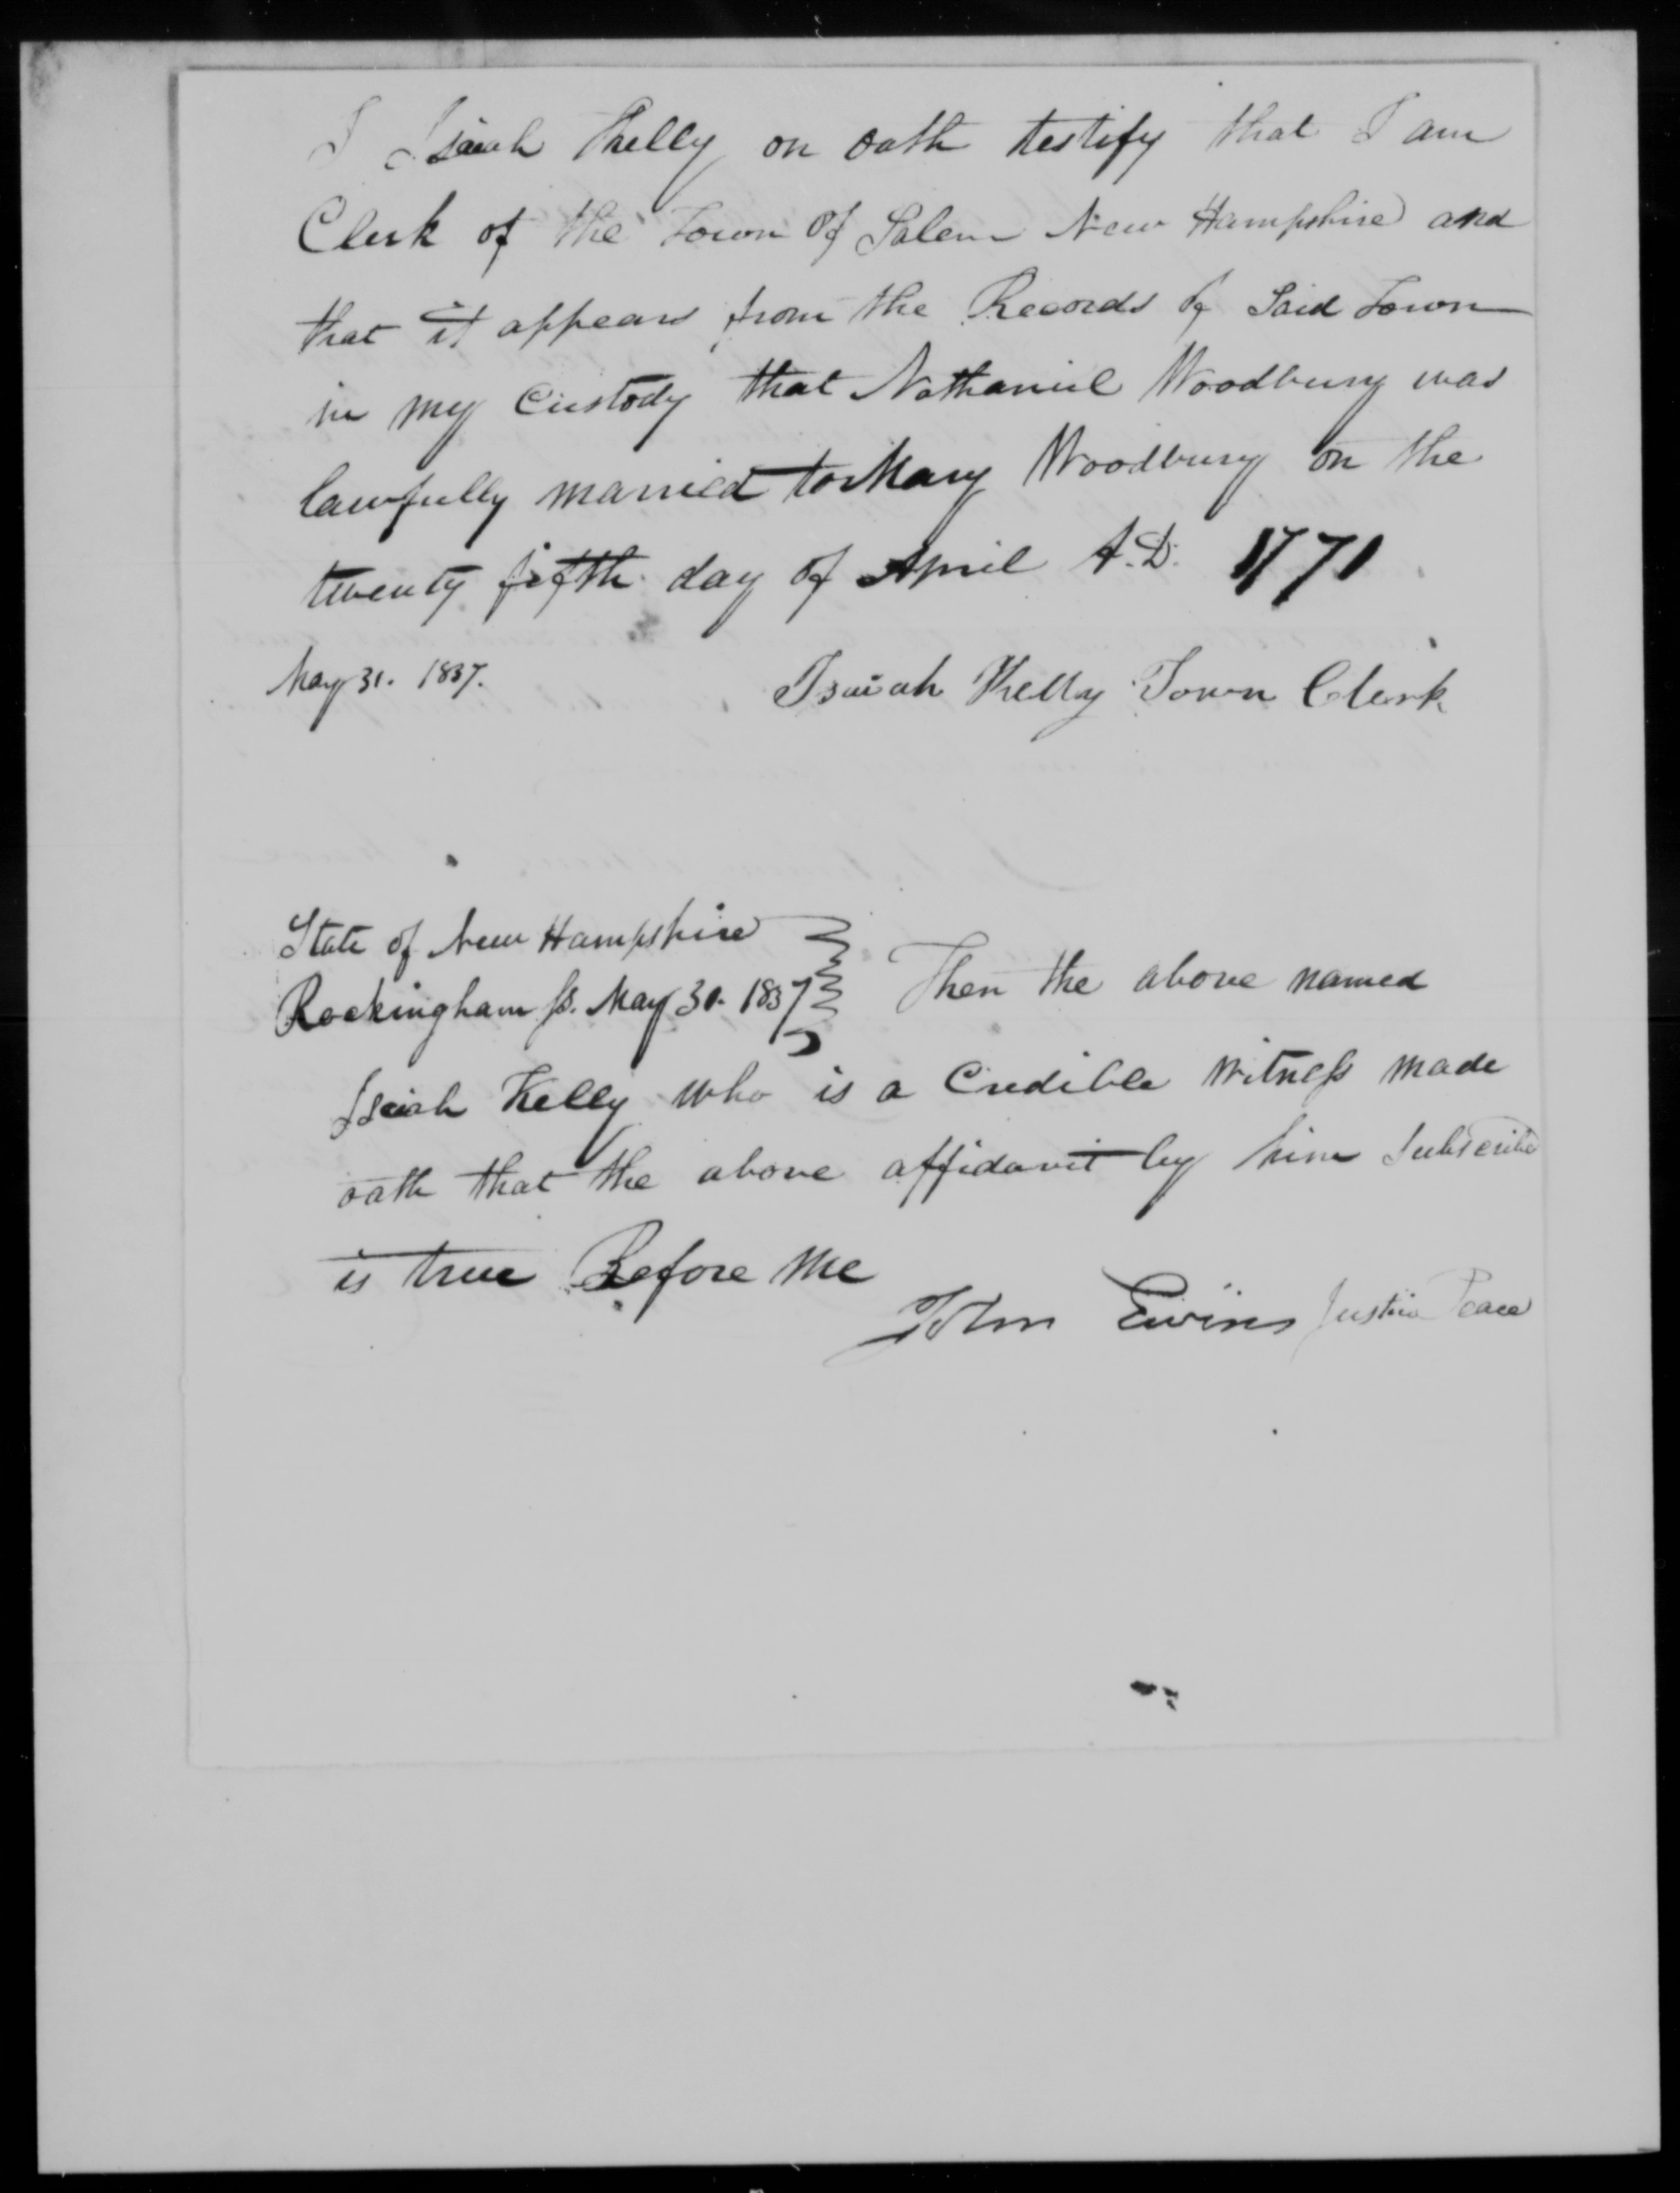 I Isaiah Kelly on oath testify that I am
Clerk of the Town of Salem New Hampshire and
that it appears from the Records of Said Town
in my Custody that Nathaniel Woodbury was
lawfully married to Mary Woodbury on the
twenty fifth day of April A.D. 1771
May 31. 1837. Isaiah Kelly Town Clerk
State of New Hampshire
Rockingham ss. May 31. 1837 Then the above named
Isaiah Kelly who is a Credible witness made
oath that the above affidavit by him Subscribed
is true Before Me
John Ewins Justice Peace